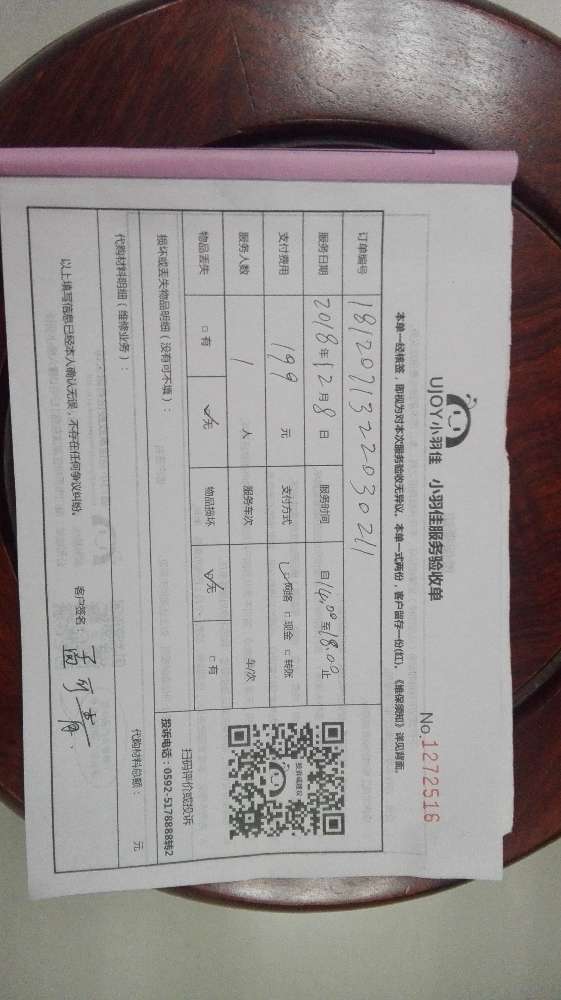 UJOY小羽佳 小羽佳服务验收单
No.1272516
本单一经核签，即视为对本次服务验收无异议。本单一式两份，客户留存一份(红)。《维保须知》详见背面。
订单编号 1812071322030211
服务日期 2018年12月8日 服务时间 自14.00至18.00止
支付费用 199 元 支付方式 ☑网络 □现金 □转账
服务人数 1 人 服务车次 车/次
物品丢失 □有 ☑无 物品损坏 ☑无 □有
扫码评价或投诉
投诉电话：0592-5178888转2
损坏或丢失物品明细（没有可不填）：
代购材料明细（维修业务）：
代购材料总额： 元
以上填写信息已经本人确认无误，不存在任何争议纠纷。
客户签名：